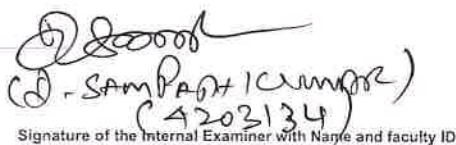 (D. SAMPATH KUMAR)
(4203134)
Signature of the Internal Examiner with Name and faculty ID